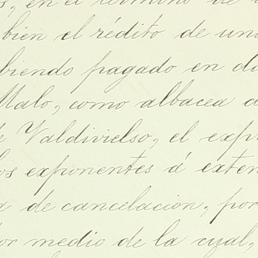 en el término de
bien el rédito de un
biendo pagado en di
Malo, como albacea d
Valdivielso, el exp
os exponentes á exten
a de cancelacion, por
or medio de la cual,